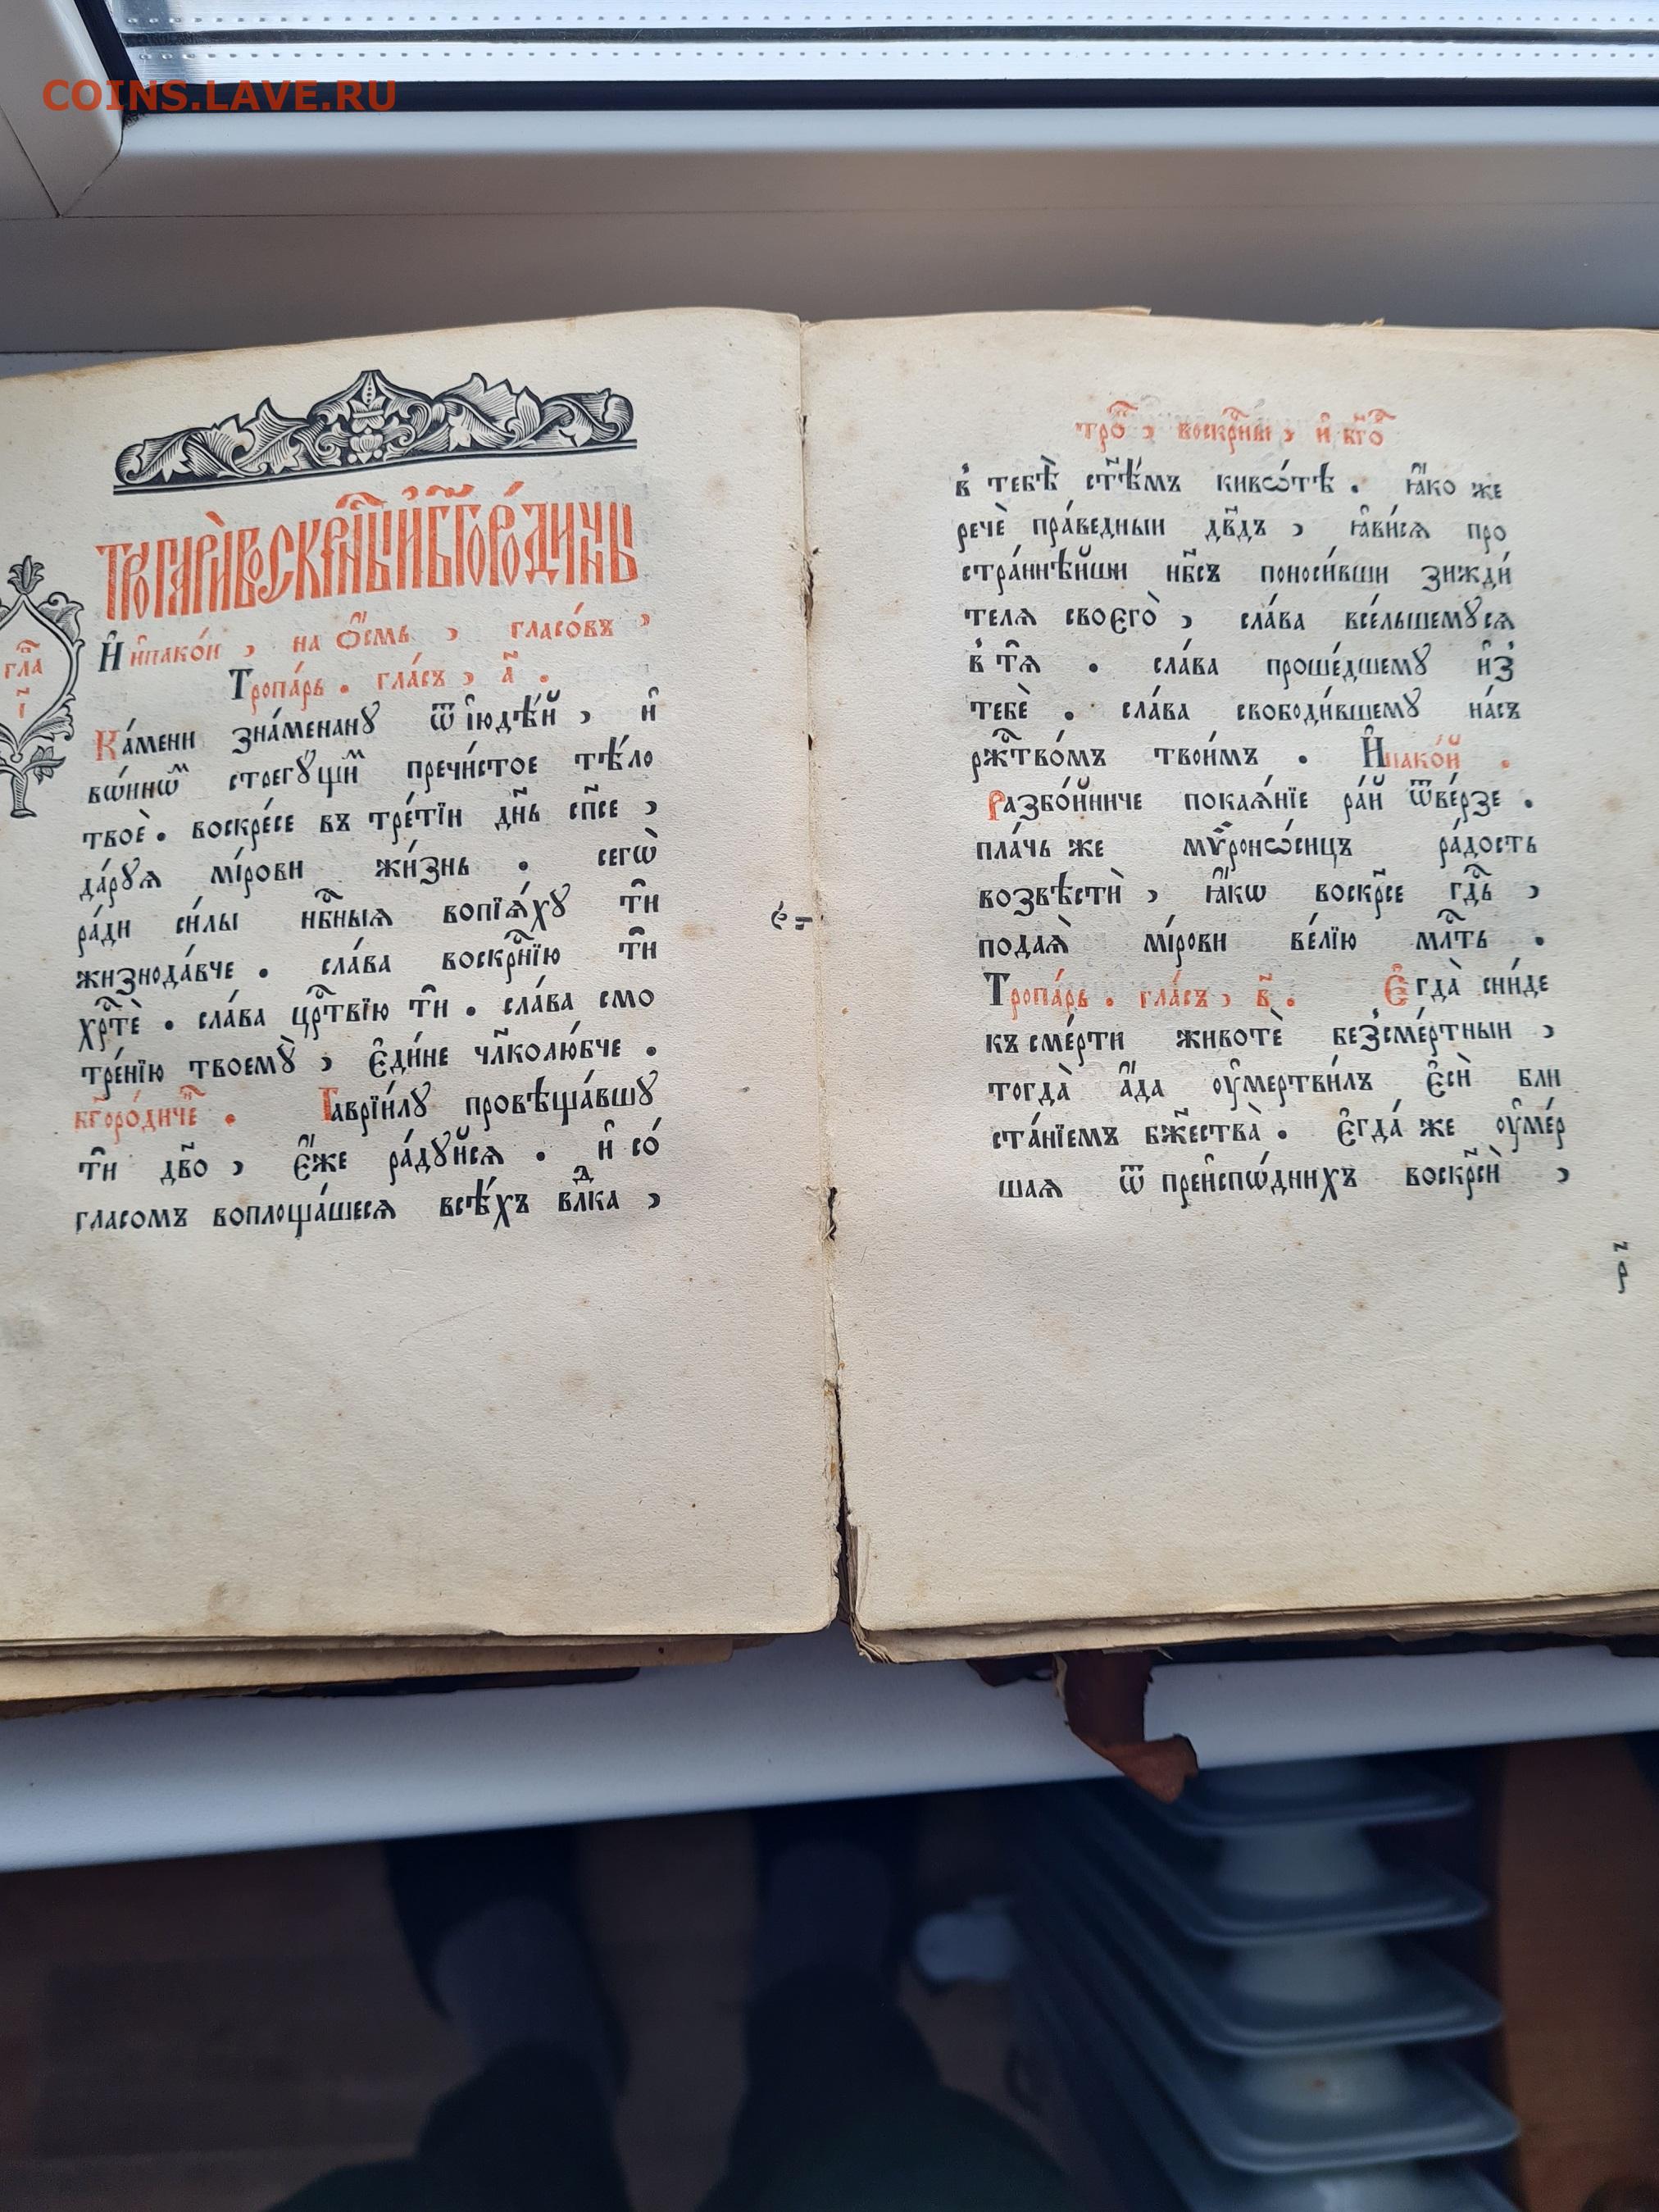 COINS.LAVE.RU
Тропарѝ воскрⷭ҇ны и҆ бг҃оро́дичны
И҆ и҆пакои́, на ѻ҆́смь, гласо́въ,
гла҃
і҃
Тропа́рь. гла́съ, а҃.
Ка́мени зна́менанꙋ ѿ і҆юдѣ́й, и҆
вѡ́инѡⷨ стрегꙋ́щиⷨ пречи́стое тѣ́ло
твоѐ. воскре́се въ тре́тїи дн҃ь сп҃се,
да́рꙋѧ мі́рови жи́знь. сегѡ̀
ра́ди си́лы нбⷭ҇ныѧ вопїѧ́хꙋ тѝ
жизнода́вче. сла́ва воскрⷭ҇нїю тѝ
хрⷭ҇тѐ. сла́ва црⷭ҇твїю тѝ. сла́ва смо
тре́нїю твоемꙋ̀, є҆ди́не чл҃колю́бче.
бг҃оро́диче҃. Гаврїи́лꙋ провѣща́вшꙋ
тѝ дв҃о, є҆́же ра́дꙋйсѧ. и҆ со́
гласомъ воплоща́шесѧ всѣ́хъ влⷣка,
трⷪ҇, воскрⷭ҇ны, и҆ бг҃ⷪ
в҆ тебѣ̀ ст҃ѣ́мъ кивѡ́тѣ. ꙗ҆́ко же
речѐ пра́ведныи дв҃дъ, ꙗ҆ви́сѧ про
стра́ннѣйши нб҃съ поноси́вши зижди́
телѧ своєго̀, сла́ва все́льшемꙋсѧ
в҆ тѧ̀. сла́ва проше́дшемꙋ и҆з̾
тебѐ. сла́ва свободи́вшемꙋ на́съ
ржⷭ҇тво́мъ твои́мъ. И҆пако́й.
Разбо́йниче покаѧ́нїе ра́й ѿве́рзе.
пла́чь же мѵ҆роно́сицъ ра́дость
возвѣстѝ, ꙗ҆́кѡ воскр҃се гдⷭ҇ь,
подаѧ̀ мі́рови ве́лїю млⷭ҇ть.
Тропа́рь. гла́съ, в҃. Є҆гда̀ сни́де
къ сме́рти животѐ без̾сме́ртныи,
тогда̀ а҆́да ᲂу҆мертви́лъ є҆сѝ бли
ста́нїемъ бж҃ества̀. Є҆гда́ же ᲂу҆ме́р
шаѧ ѿ преи҆спѡ́дних̾ъ воскр҃сѝ,